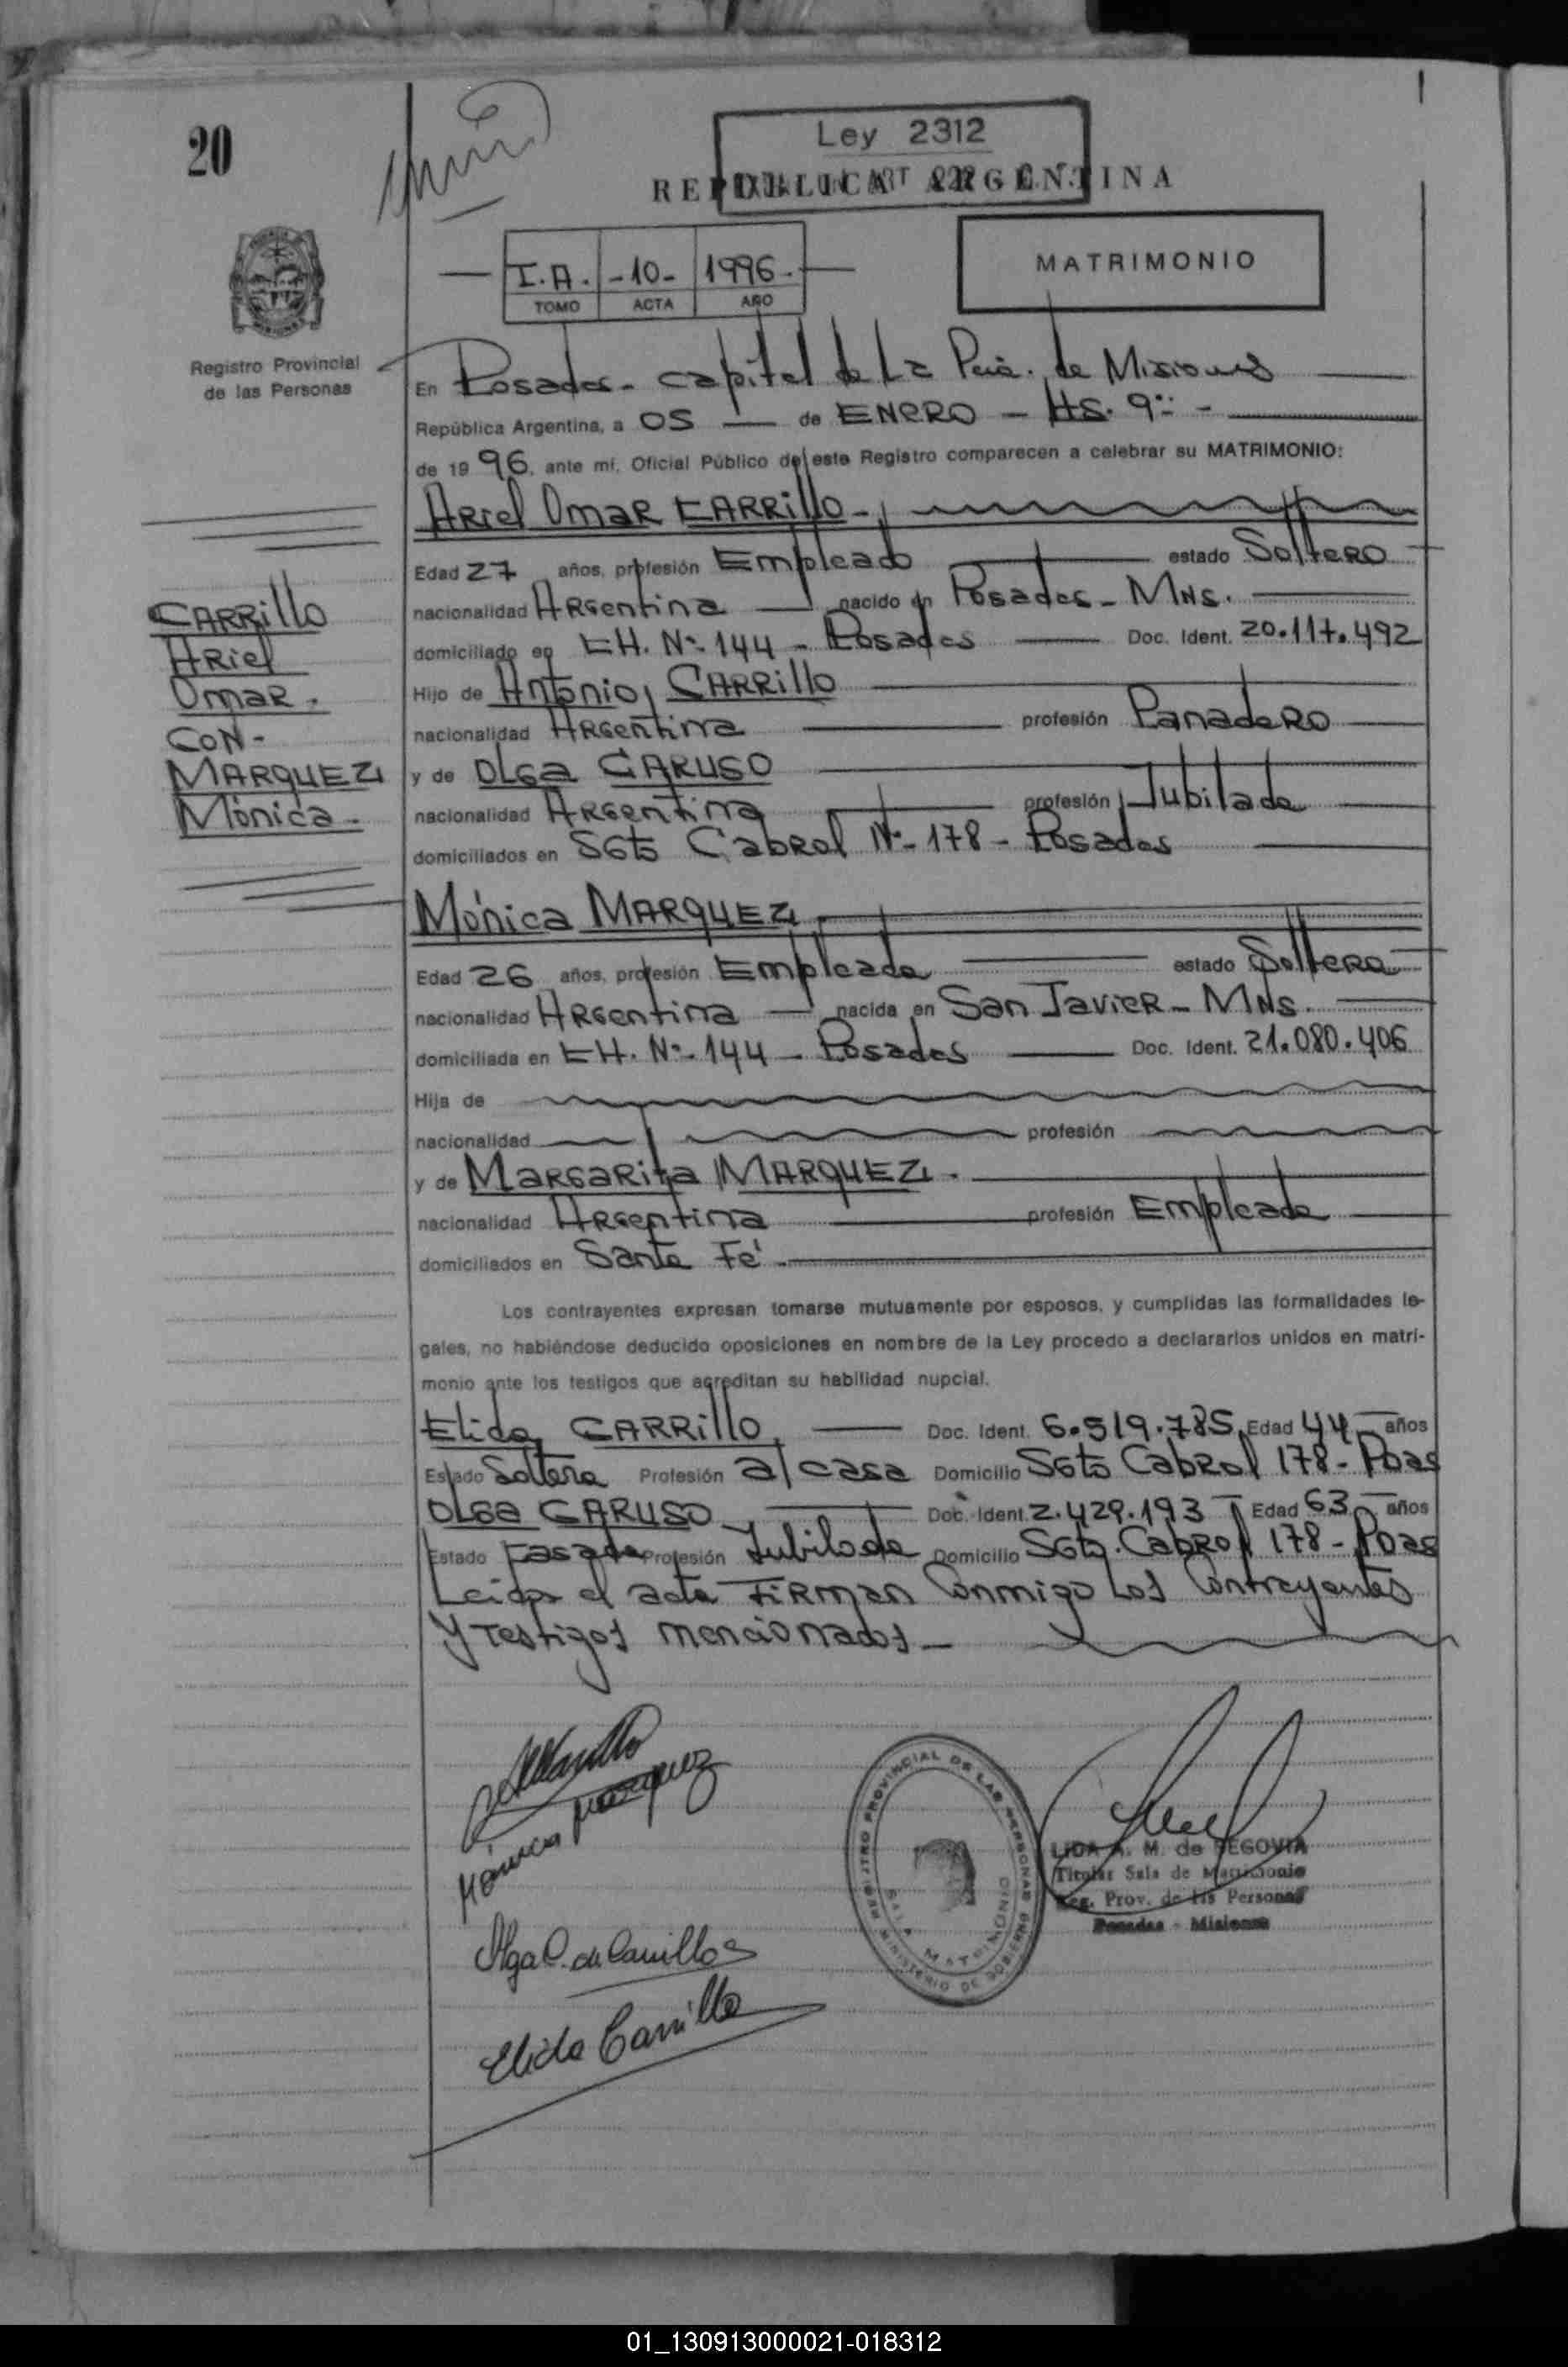 20
Ley 2312
REPUBLICA ARGENTINA
I.A. -10- 1996.-
TOMO ACTA AÑO
MATRIMONIO
Registro Provincial
de las Personas
En Posadas - capital de La Pcia. de Misiones
República Argentina, a 05 de ENERO - HS. 9:: -
de 1996, ante mí, Oficial Público de este Registro comparecen a celebrar su MATRIMONIO:
Ariel Omar CARRillo -
Edad 27 años, profesión Empleado estado Soltero
nacionalidad Argentina nacido en Posadas - Mns.
domiciliado en CH. Nº 144 - Posadas Doc. Ident. 20.117.492
Hijo de Antonio CARRillo
nacionalidad Argentina profesión Panadero
y de OLGA CARUSO
nacionalidad Argentina profesión Jubilada
domiciliados en SGto Cabral Nº 178 - Posadas
CARRillo
ARiel
Omar.
CON-
MARQUEZ
Mónica.-
Mónica MARQUEZ.
Edad 26 años, profesión Empleada estado Soltera
nacionalidad Argentina nacida en San Javier - Mns.
domiciliada en CH. Nº 144 - Posadas Doc. Ident. 21.080.406
Hija de
nacionalidad profesión
y de Margarita MARQUEZ.
nacionalidad Argentina profesión Empleada
domiciliados en Santa Fé.
Los contrayentes expresan tomarse mutuamente por esposos, y cumplidas las formalidades le-
gales, no habiéndose deducido oposiciones en nombre de la Ley procedo a declararlos unidos en matri-
monio ante los testigos que acreditan su habilidad nupcial.
Elida CARRillo, Doc. Ident. 6.519.785 Edad 44 años
Estado Soltera Profesión a/casa Domicilio SGto Cabral 178 - Pdas
OLGA CARUSO Doc. Ident. 2.429.193 Edad 63 años
Estado Casada Profesión Jubilada Domicilio SGto. Cabral 178 - Pdas
Leida el acta Firman Conmigo Los Contrayentes
y Testigos mencionados -
Mónica Marquez
Olga C. de Carrillo
Elida Carrillo
REGISTRO PROVINCIAL DE LAS PERSONAS
MINISTERIO DE GOBIERNO
SALA MATRIMONIO
LIDA A. M. de SEGOVIA
Titular Sala de Matrimonio
Reg. Prov. de las Personas
Posadas - Misiones
01_130913000021-018312